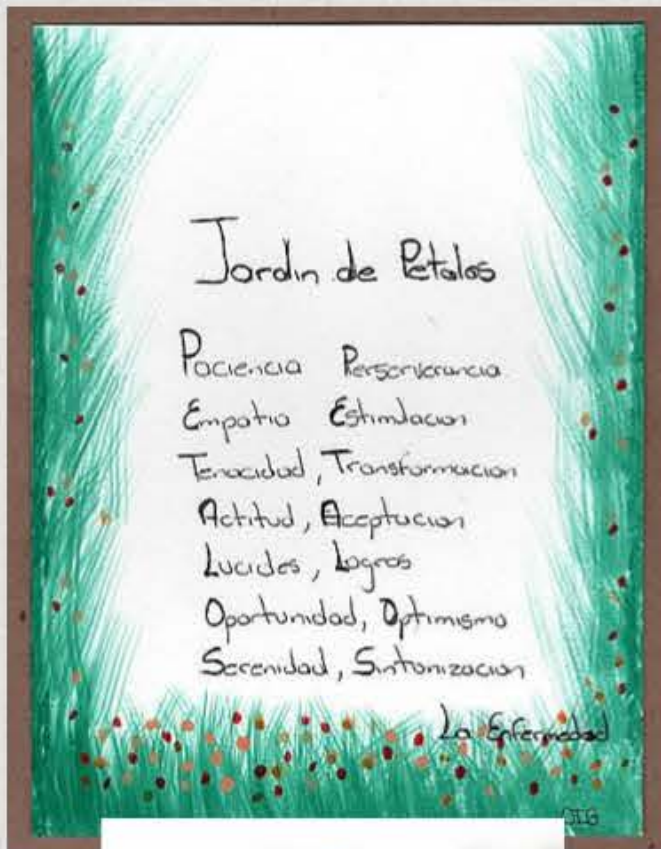 Jardin de Petalos
Paciencia Perserverancia
Empatia Estimulacion
Tenacidad, Transformacion
Actitud, Aceptacion
Lucides, Logros
Oportunidad, Optimismo
Serenidad, Sintonizacion
La Enfermedad